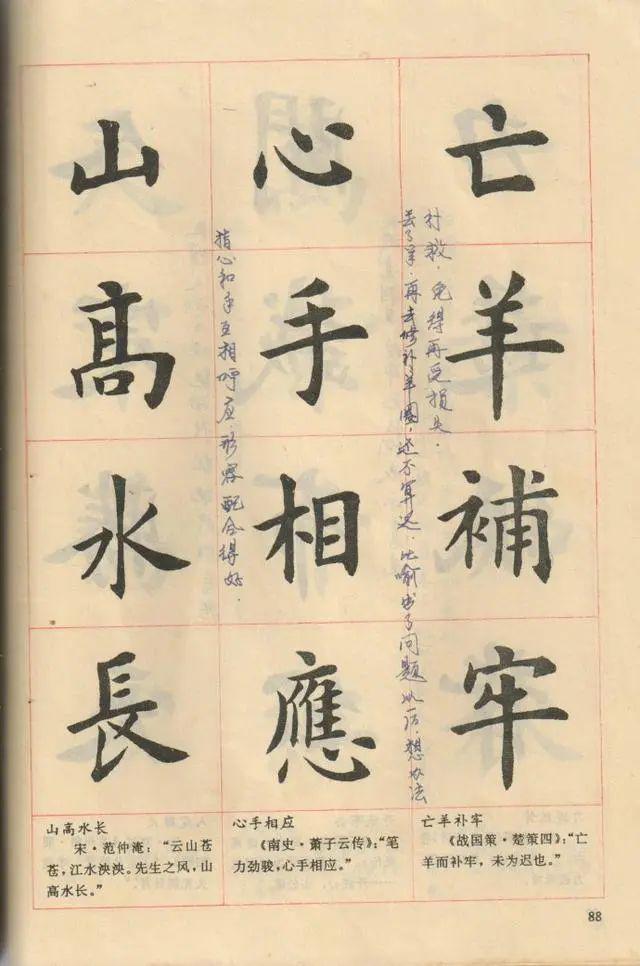 亡羊補牢
心手相應
山高水長
丢了羊，再去修补羊圈，还不算迟．比喻出了问题以后，想办法
补救，免得再受损失．
指心和手互相呼应．形容配合得好．
亡羊补牢
《战国策·楚策四》：“亡
羊而补牢，未为迟也。”
心手相应
《南史·萧子云传》：“笔
力劲骏，心手相应。”
山高水长
宋·范仲淹：“云山苍
苍，江水泱泱。先生之风，山
高水长。”
88